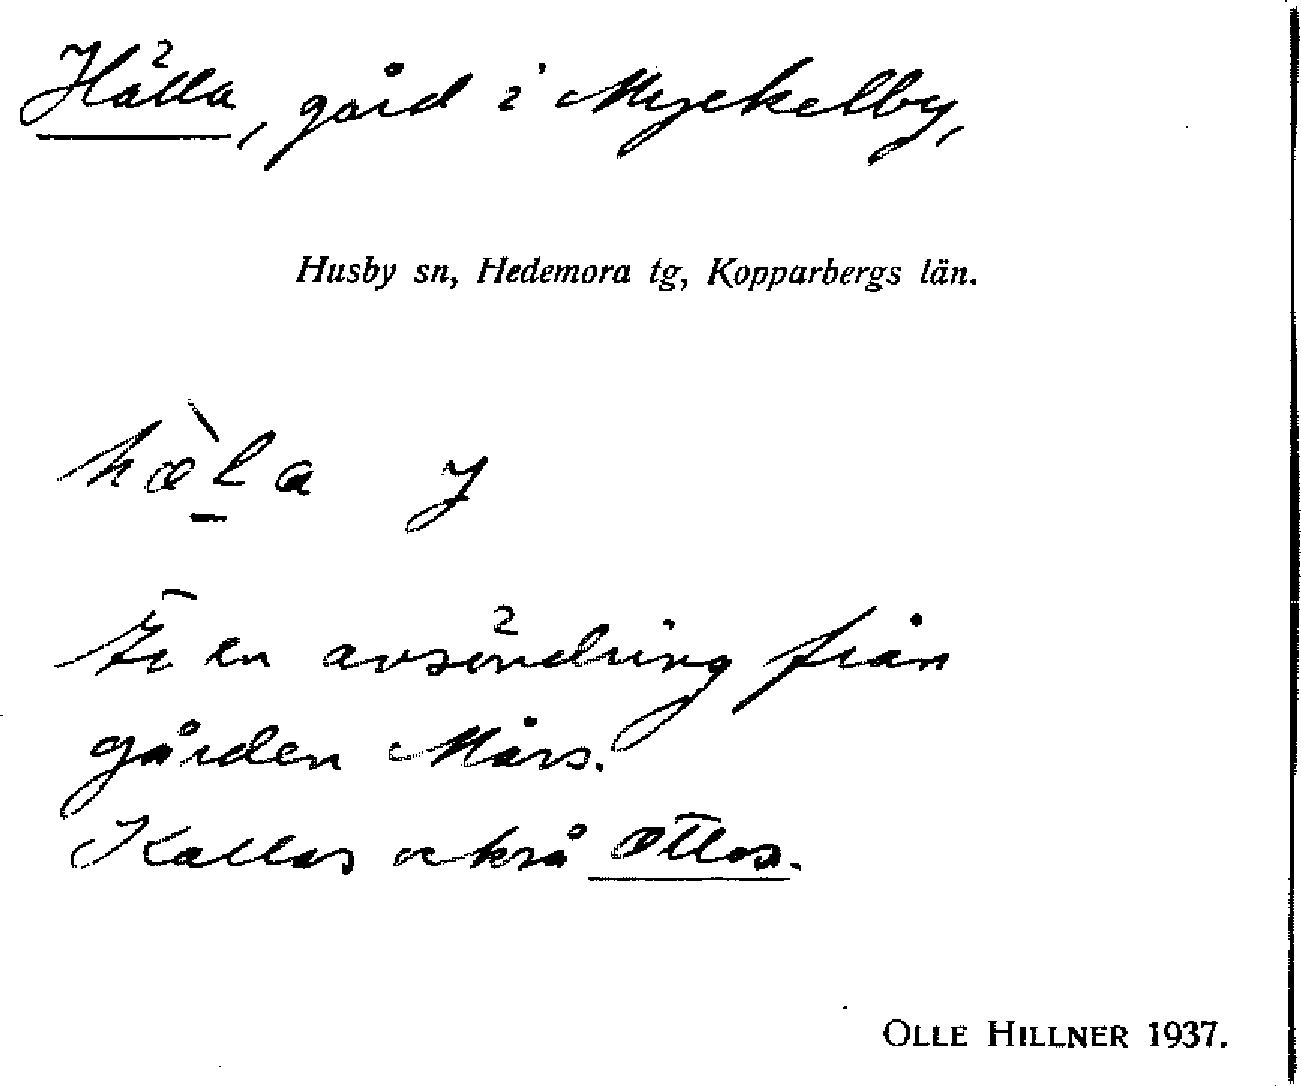 Hälla, gård i Myckelby,
Husby sn, Hedemora tg, Kopparbergs län.
hæ̀l̠a y
Är en avsöndring från
gården Mårs.
Kallas också Ottos.
OLLE HILLNER 1937.